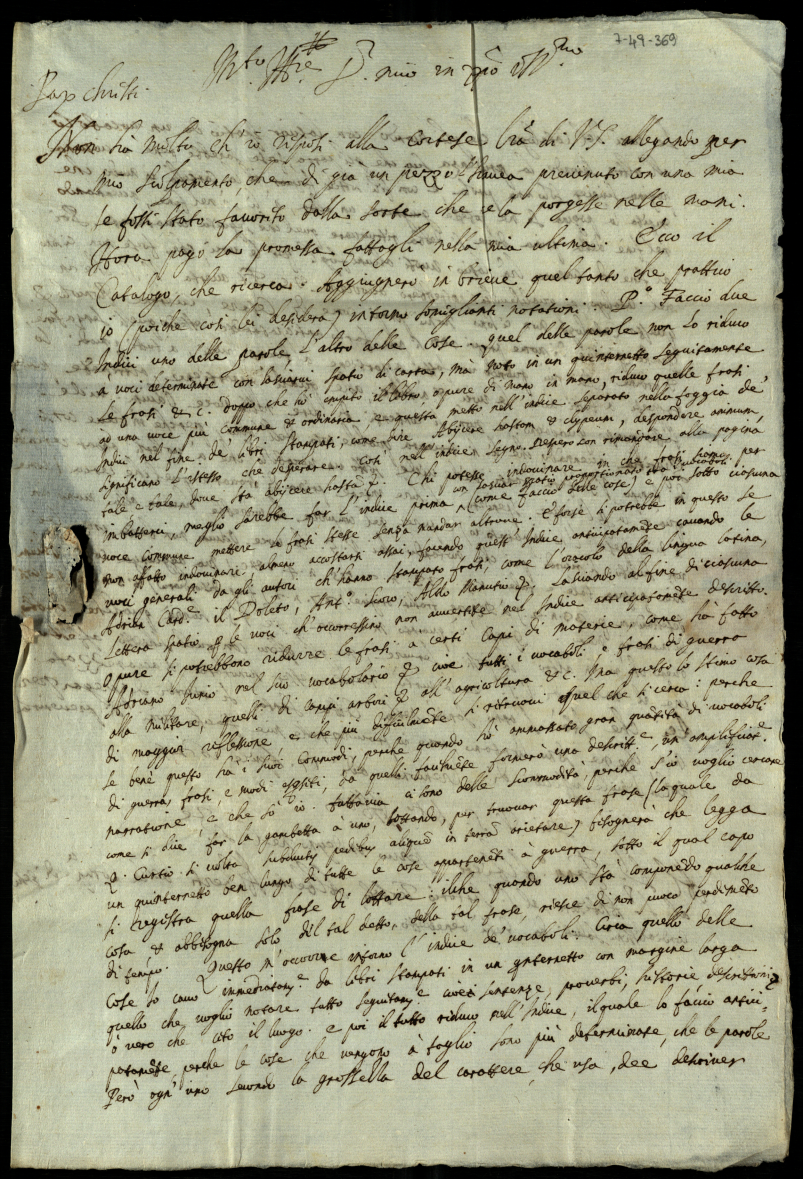 7-49-369
M.to Ill.re S.r mio in Xpo
Pax Christi.
Non sia molto ch'io risposi alla cortese l'ra di V.S. allegando per
mio che di già un pezzo l'havea prevenuto con una mia
se fosse stato favorito dalla sorte che ce la porgesse nelle mani.
Hora pago la promessa fattagli nella mia ultima. Ecco il
Catalogo, che ricerca. Soggiugnerò in brieve quel tanto che prattico
io (poiche così lei desidera) intorno somiglianti notationi. P.o Faccio due
Indici uno delle parole l'altro delle cose. quel delle parole non lo riduco
à voci determinate con lasciarvi spatio di carta, mà noto in un quinternetto seguitamente
le frasi & c. doppo che hò empito il libro, o pure di mano in mano, riduco quelle frasi
ad una voce più commune & ordinaria, e questa metto nell'indice separato nella foggia de'
Indici nel fine de libri stampati, come dire Abijcere hastam & clypeum, despondere animum,
significano l'istesso che desperare. così nell'indice segno. Despero con rimandare alla pagina
tale e tale, dove stà abijcere hasta &. Chi potesse indovinare in che frasi siamo per
imbatterci, meglio sarebbe far l'indice prima, con lasciar spatio proportionato da vocaboli (come faccio delle cose) e poi sotto ciascuna
voce commune mettere le frasi stesse senza mandar altrove. E forse si potrebbe in questo se
non affatto indovinare, almeno accostarsi assai, facendo quest'Indice anticipatamẽte cavando le
voci generali da gli autori ch'hanno stampato frasi, come l'oracolo della lingua latina,
Adrian Card.e il Doleto, Ant.o Aldo Manutio &. Lasciando al fine di ciascuna
lettera spatio p le voci ch'occorressino non avvertite nel Indice anticipatamẽte descritto.
O pure si potrebbono ridurre le frasi a certi capi di materie, come hà fatto
Adriano Iunio nel suo vocabolario & cioè tutti i vocaboli e frasi di guerra
alla militare, quelli di campi arbori & all'agricoltura & c. Ma questo lo stimo cosa
di maggior riflessione, e che più difficilmẽte si ritruovi quel che si cerca: perche
se benè questo hà i suoi commodi, perche quando hò ammassato gran quãtità di vocaboli
di guerra, frasi, e modi da quelli facilmẽte formerò una descritt.e, un'amplificat.e
narratione, e che sò io. tuttavia ci sono delle scommodità, perche s'io voglio cercare
come si dice far la gambetta à uno, lottando, per truovar questa frase (la quale da
Q. Curtio si volta subductis pedibus aliquẽ in terrã arietare) bisognerà che legga
un quinternetto ben lungo di tutte le cose appartenẽti à guerra, sotto il qual capo
si registra quella frase di lottare: il che quando uno stà componẽdo qualche
cosa & abbisogna solo del tal detto, della tal frase, riesce di non poco perdimẽto
di tempo. Questo m'occorre intorno l'indice de' vocaboli. Circa quello delle
cose Io cavo immediatam.e da libri stampati in un q̃nternetto con margine larga
quello che voglio notare tutto seguitam.e cioè sentenze, proverbi, historie descrittioni &
ò vero che cito il luogo. e poi il tutto riduco nell'Indice, il quale lo faccio antici-
patamẽte, perche le cose che vengono à taglio sono più determinate, che le parole
Però ogn'uno secondo la grossezza del carattere, che usa, dee descriver